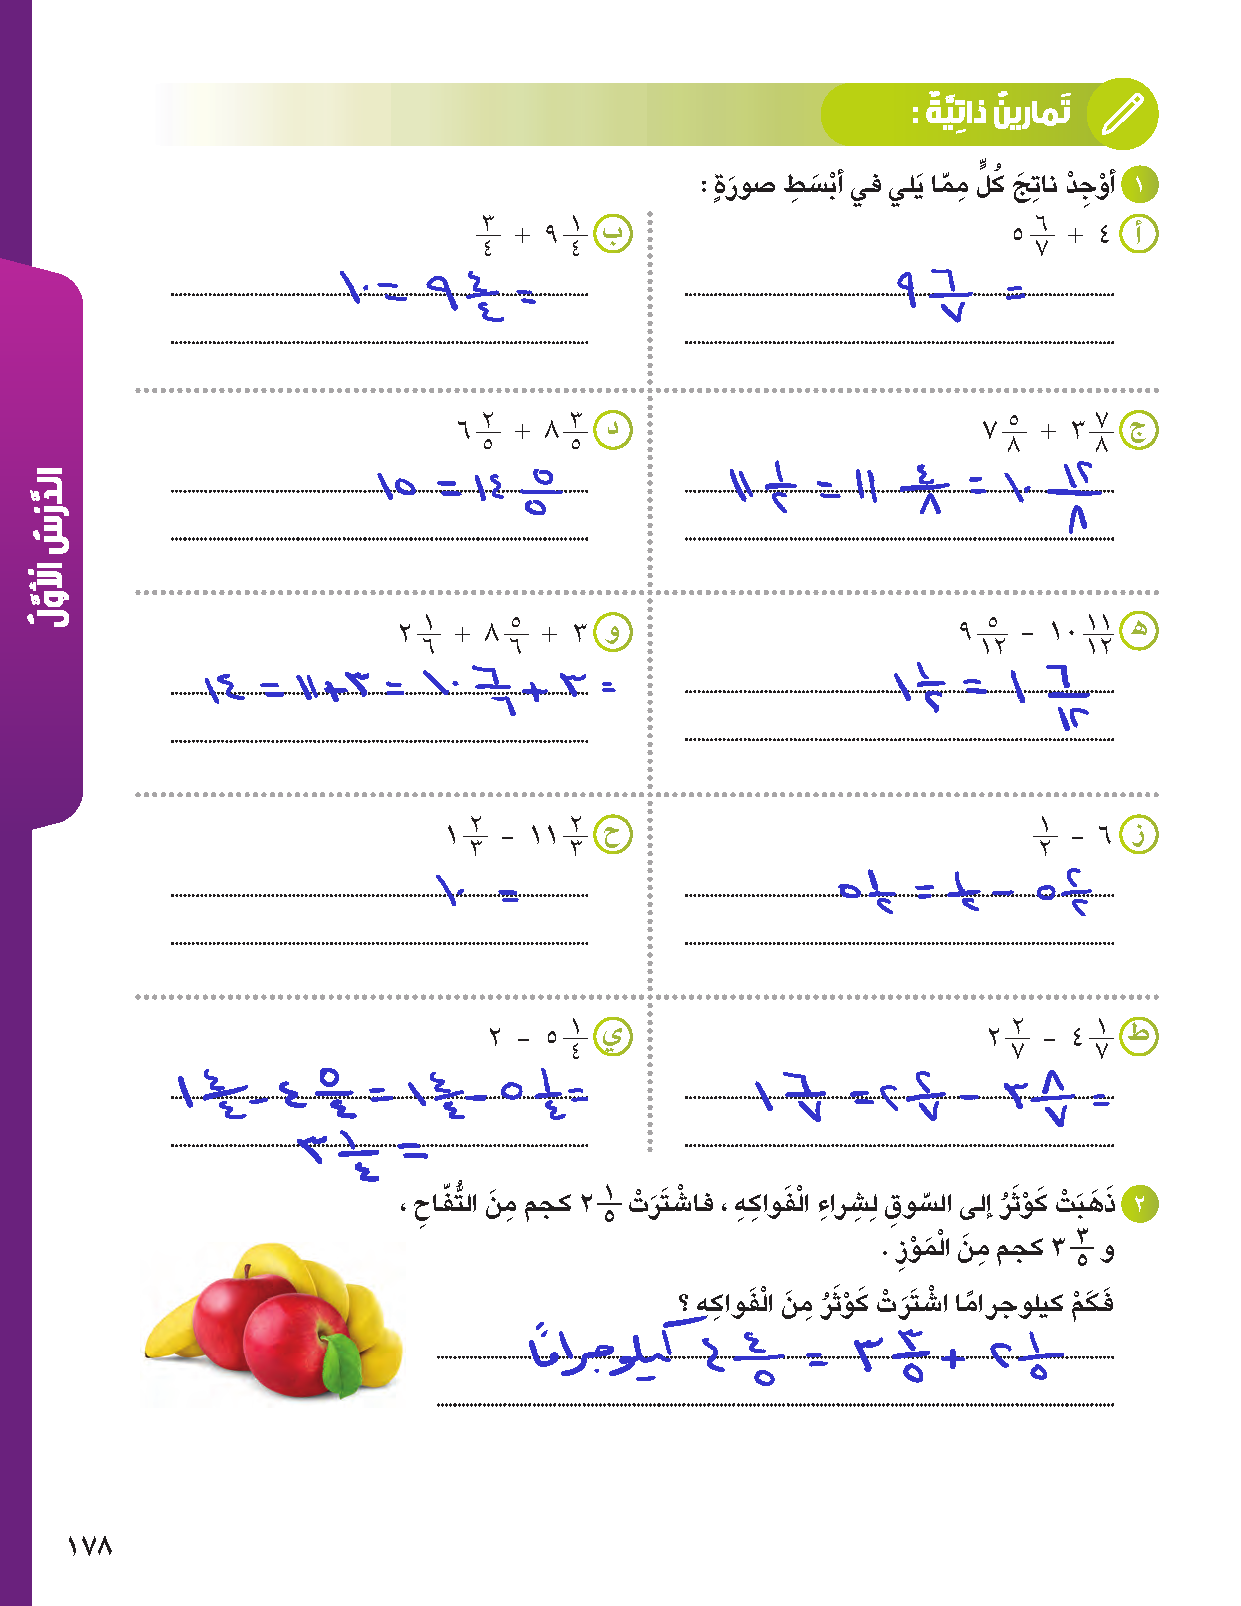 تَمارينُ ذاتِيَّةٌ :
١ أَوْجِدْ ناتِجَ كُلٍّ مِمّا يَلي في أَبْسَطِ صورَةٍ :
أ ٤ + ٥ ٦/٧
= ٩ ٦/٧
ب ٩ ١/٤ + ٣/٤
= ٩ ٤/٤ = ١٠
ج ٣ ٧/٨ + ٧ ٥/٨
١٠ ١٢/٨ = ١١ ٤/٨ = ١١ ١/٢
د ٨ ٣/٥ + ٦ ٢/٥
١٤ ٥/٥ = ١٥
هـ ١٠ ١١/١٢ − ٩ ٥/١٢
١ ٦/١٢ = ١ ١/٢
و ٣ + ٨ ٥/٦ + ٢ ١/٦
= ٣ + ١٠ ٦/٦ = ٣ + ١١ = ١٤
ز ٦ − ١/٢
٥ ٢/٢ − ١/٢ = ٥ ١/٢
ح ١١ ٢/٣ − ١ ٢/٣
= ١٠
ط ٤ ١/٧ − ٢ ٢/٧
= ٣ ٨/٧ − ٢ ٢/٧ = ١ ٦/٧
ي ٥ ١/٤ − ٢
= ٥ ١/٤ − ١ ٤/٤ = ٤ ٥/٤ − ١ ٤/٤
= ٣ ١/٤
٢ ذَهَبَتْ كَوْثَرُ إلى السّوقِ لِشِراءِ الْفَواكِهِ ، فاشْتَرَتْ ٢ ١/٥ كجم مِنَ التُّفّاحِ ،
و ٣ ٣/٥ كجم مِنَ الْمَوْزِ .
فَكَمْ كيلوجرامًا اشْتَرَتْ كَوْثَرُ مِنَ الْفَواكِهِ ؟
٢ ١/٥ + ٣ ٣/٥ = ٤ ٤/٥ كيلوجرامًا
الدَّرْسُ الأَوَّلُ
١٧٨